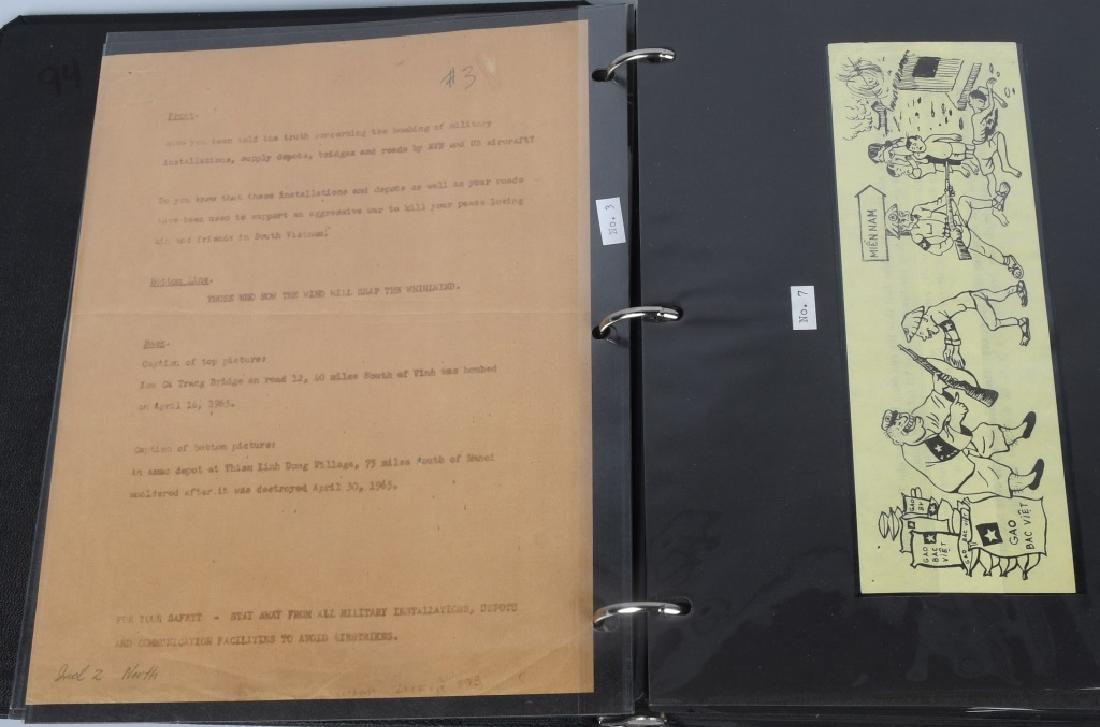 94
#3
Front.
Have you been told the truth concerning the bombing of military
installations, supply depots, bridges and roads by RVN and US aircraft?
Do you know that these installations and depots as well as your roads
have been used to support an aggressive war to kill your peace loving
kin and friends in South Vietnam?
Bottom Line.
THOSE WHO SOW THE WIND WILL REAP THE WHIRLWIND.
Back.
Caption of top picture:
Trang Bridge on road 12, 40 miles North of Vinh was bombed
on April 16, 1965.
Caption of bottom picture:
An ammo depot at Thien Linh Dong Village, 75 miles South of Hanoi
smoldered after it was destroyed April 30, 1965.
FOR YOUR SAFETY - STAY AWAY FROM ALL MILITARY INSTALLATIONS, DEPOTS
AND COMMUNICATION FACILITIES TO AVOID AIRSTRIKES.
Incl 2 North
No. 3
No. 7
MIỀN NAM
GAO
BẮC VIỆT
GAO
BẮC
VIỆT
GAO